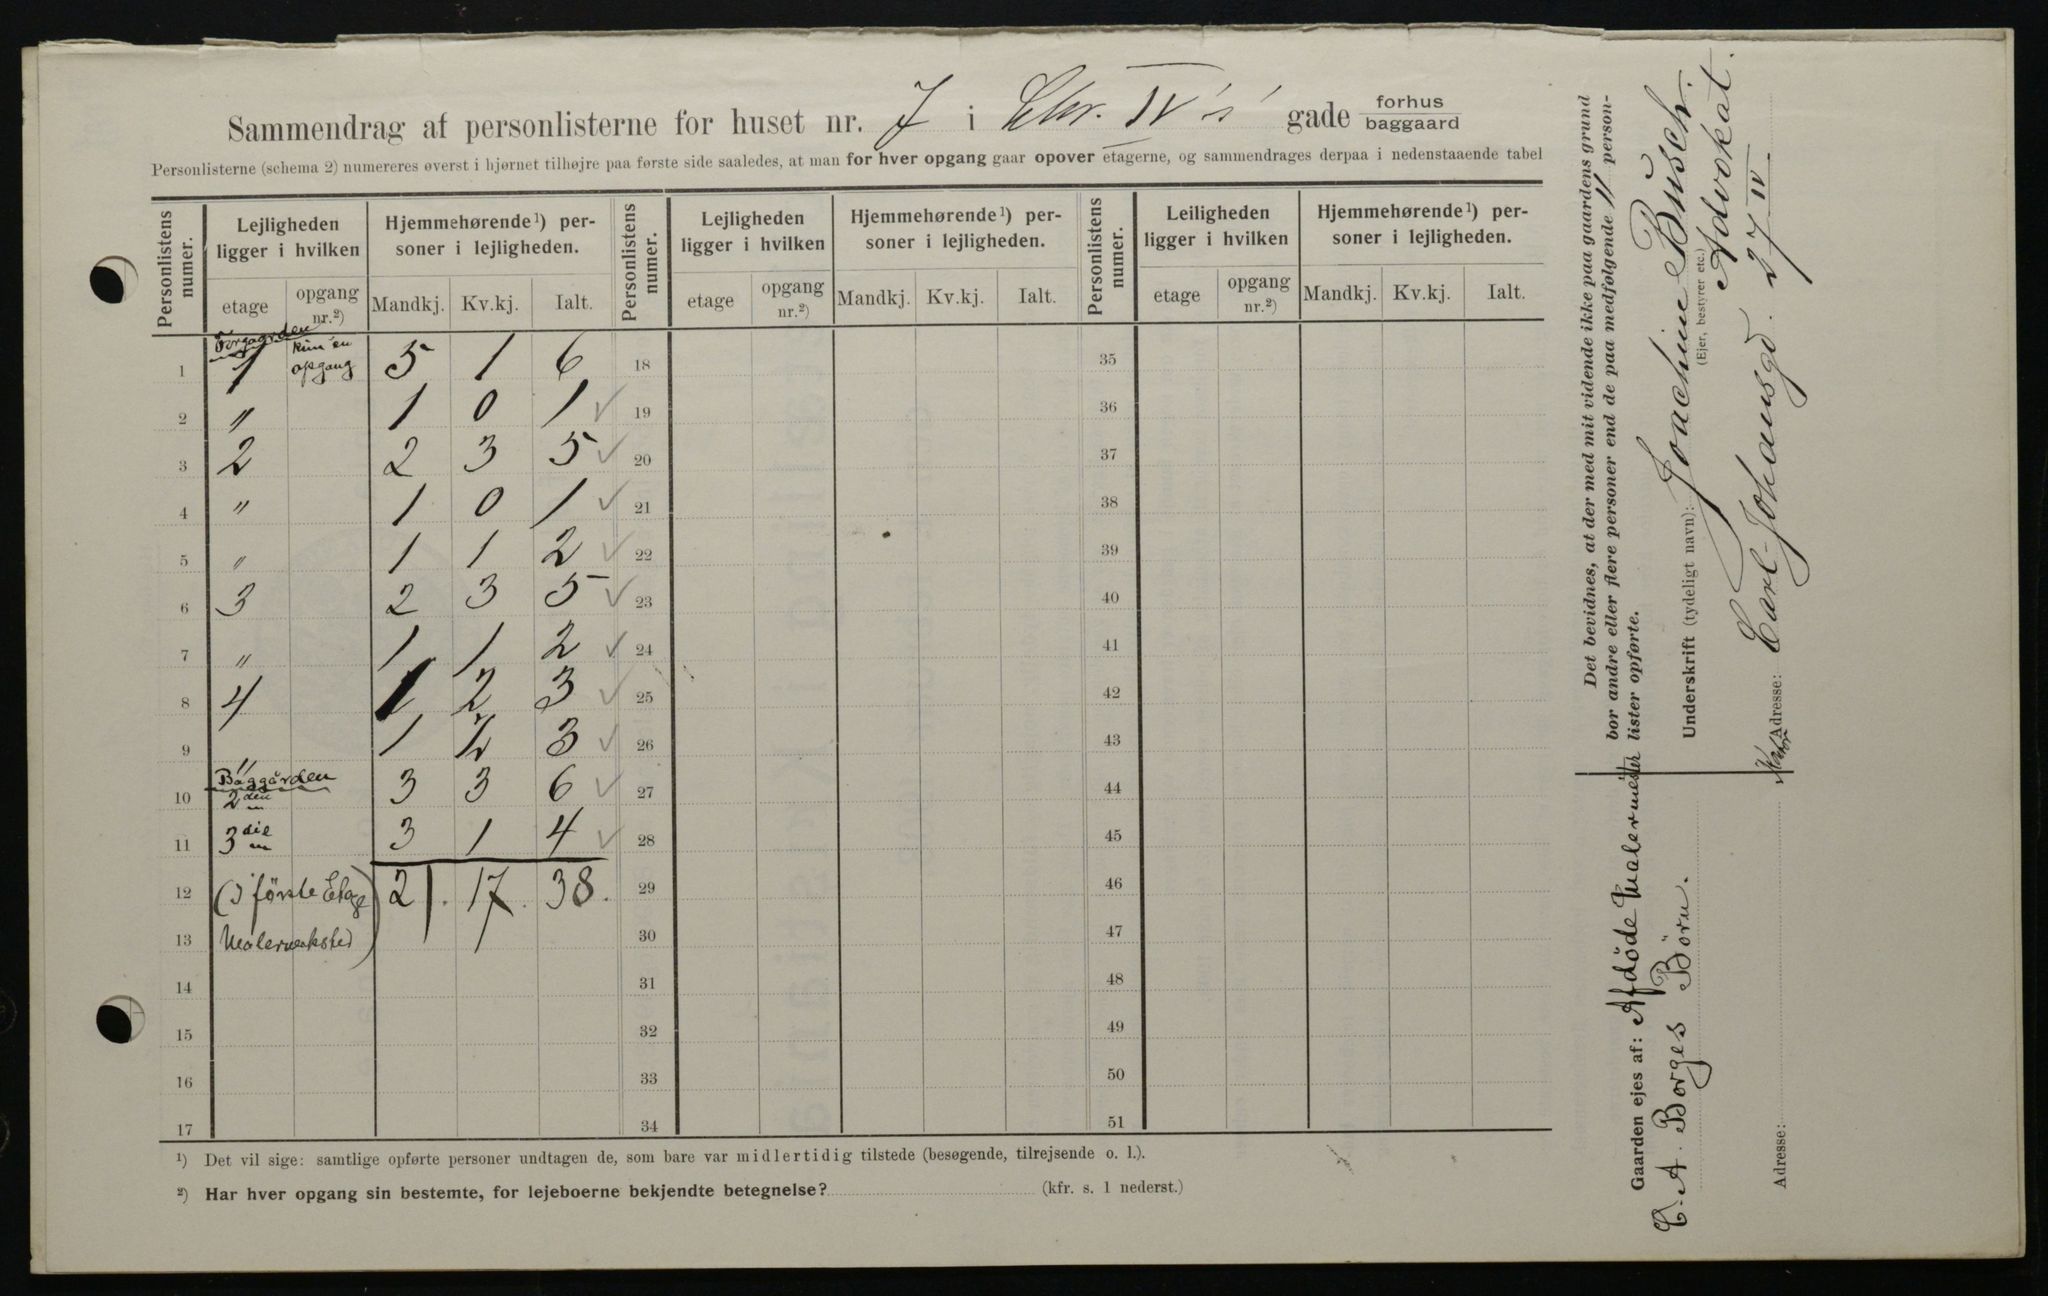 Sammendrag af personlisterne for huset nr. 7 i Chr. IV's gade forhus baggaard
Personlisterne (schema 2) numereres øverst i hjørnet tilhøjre paa første side saaledes, at man for hver opgang gaar opover etagerne, og sammendrages derpaa i nedenstaaende tabel
Personlistens numer. Lejligheden ligger i hvilken Hjemmehørende¹) personer i lejligheden. Personlistens numer. Lejligheden ligger i hvilken Hjemmehørende¹) personer i lejligheden. Personlistens numer. Leiligheden ligger i hvilken Hjemmehørende¹) personer i lejligheden.
etage opgang nr.²) Mandkj. Kv.kj. Ialt. etage opgang nr.²) Mandkj. Kv.kj. Ialt. etage opgang nr.²) Mandkj. Kv.kj. Ialt.
Forgaarden kun en
1 1 opgang 5 1 6 18 35
2 " 1 0 1 19 36
3 2 2 3 5 20 37
4 " 1 0 1 21 38
5 " 1 1 2 22 39
6 3 2 3 5 23 40
7 " 1 1 2 24 41
8 4 1 2 3 25 42
9 " 1 2 3 26 43
Baggården
10 2den 3 3 6 27 44
11 3die 3 1 4 28 45
12 (I förste Etage 21. 17. 38. 29 46
13 Malerverksted) 30 47
14 31 48
15 32 49
16 33 50
17 34 51
¹) Det vil sige: samtlige opførte personer undtagen de, som bare var midlertidig tilstede (besøgende, tilrejsende o. l.).
²) Har hver opgang sin bestemte, for lejeboerne bekjendte betegnelse? (kfr. s. 1 nederst.)
Det bevidnes, at der med mit vidende ikke paa gaardens grund
bor andre eller flere personer end de paa medfølgende 11 personlister opførte.
Underskrift (tydeligt navn): Joachime Büsch.
(Ejer, bestyrer etc.) Advokat.
Adresse: Carl-Johansgd. 27 IV.
Gaarden ejes af: Afdöde Malermester
C. A. Borges Börn.
Adresse: